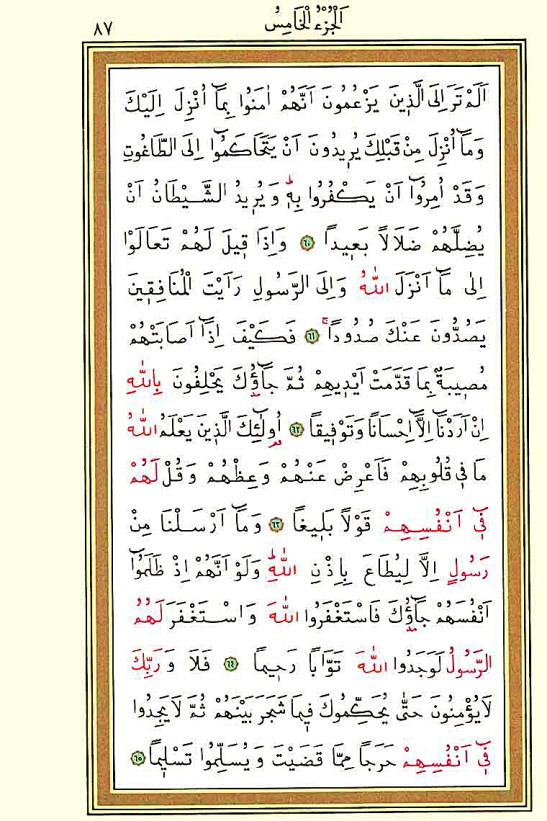 اَلْجُزْءُ الْخَامِسُ
٨٧
اَلَمْ تَرَ اِلَى الَّذٖينَ يَزْعُمُونَ اَنَّهُمْ اٰمَنُوا بِمَٓا اُنْزِلَ اِلَيْكَ
وَمَٓا اُنْزِلَ مِنْ قَبْلِكَ يُرٖيدُونَ اَنْ يَتَحَاكَمُٓوا اِلَى الطَّاغُوتِ
وَقَدْ اُمِرُٓوا اَنْ يَكْفُرُوا بِهٖۜ وَيُرٖيدُ الشَّيْطَانُ اَنْ
يُضِلَّهُمْ ضَلَالًا بَعٖيدًا ﴿٦٠﴾ وَاِذَا قٖيلَ لَهُمْ تَعَالَوْا
اِلٰى مَٓا اَنْزَلَ اللّٰهُ وَاِلَى الرَّسُولِ رَاَيْتَ الْمُنَافِقٖينَ
يَصُدُّونَ عَنْكَ صُدُودًاۚ ﴿٦١﴾ فَكَيْفَ اِذَٓا اَصَابَتْهُمْ
مُصٖيبَةٌ بِمَا قَدَّمَتْ اَيْدٖيهِمْ ثُمَّ جَٓاؤُ۫كَ يَحْلِفُونَ بِاللّٰهِ
اِنْ اَرَدْنَٓا اِلَّٓا اِحْسَانًا وَتَوْفٖيقًا ﴿٦٢﴾ اُو۬لٰٓئِكَ الَّذٖينَ يَعْلَمُ اللّٰهُ
مَا فٖى قُلُوبِهِمْ فَاَعْرِضْ عَنْهُمْ وَعِظْهُمْ وَقُلْ لَهُمْ
فٖٓى اَنْفُسِهِمْ قَوْلًا بَلٖيغًا ﴿٦٣﴾ وَمَٓا اَرْسَلْنَا مِنْ
رَسُولٍ اِلَّا لِيُطَاعَ بِاِذْنِ اللّٰهِۜ وَلَوْ اَنَّهُمْ اِذْ ظَلَمُٓوا
اَنْفُسَهُمْ جَٓاؤُ۫كَ فَاسْتَغْفَرُوا اللّٰهَ وَاسْتَغْفَرَ لَهُمُ
الرَّسُولُ لَوَجَدُوا اللّٰهَ تَوَّابًا رَحٖيمًا ﴿٦٤﴾ فَلَا وَرَبِّكَ
لَا يُؤْمِنُونَ حَتّٰى يُحَكِّمُوكَ فٖيمَا شَجَرَ بَيْنَهُمْ ثُمَّ لَا يَجِدُوا
فٖٓى اَنْفُسِهِمْ حَرَجًا مِمَّا قَضَيْتَ وَيُسَلِّمُوا تَسْلٖيمًا ﴿٦٥﴾